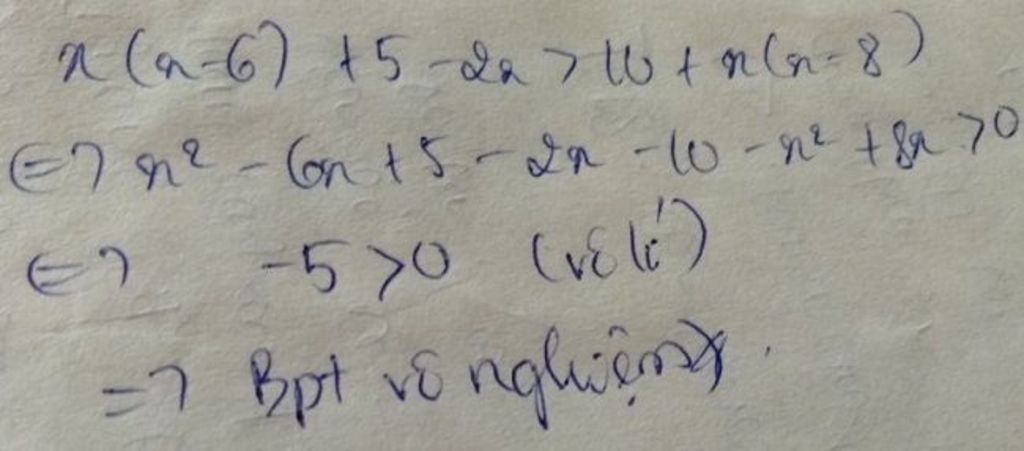 x(x-6) +5 -2x > 10 + x(x-8)
<=> x² - 6x + 5 - 2x - 10 - x² + 8x > 0
<=> -5 > 0 (vô lí)
=> Bpt vô nghiệm.